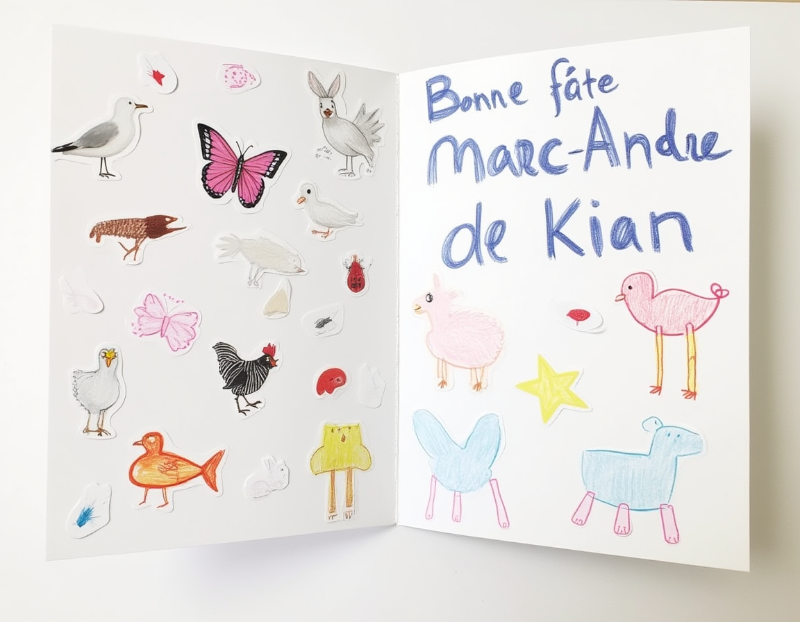 Bonne fáte
Marc-Andre
de Kian